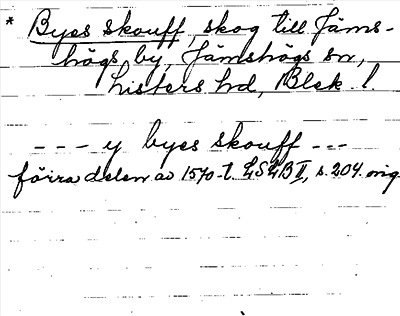 * Byes skouff, skog till Jäms-
högs by, Jämshögs sn,
Listers hd, Blek. l.
- - - y byes skouff - - -
förra delen av 1570-t. LSLB II, s. 204. orig.